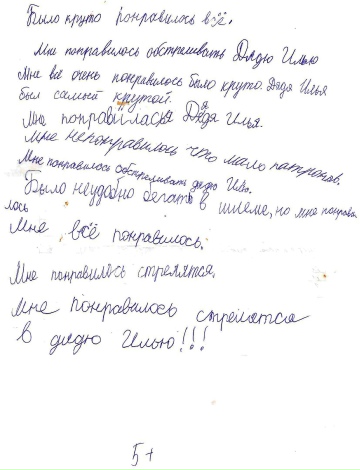 Было круто понравилось всё.
Мне понравилось обстреливать Дядю Илью
Мне всё очень понравилось было круто. Дядя Илья
был самый крутой.
Мне понравилася Дядя Илья.
Мне непонравилось что мало патронов.
Мне понравилось обстреливать дядю Илю.
Было неудобно бегать в шлеме, но мне понрави-
лось
Мне всё понравилось.
Мне понравилось стрелятся.
Мне понравилось стрелятся
в дядю Илью!!!
5+